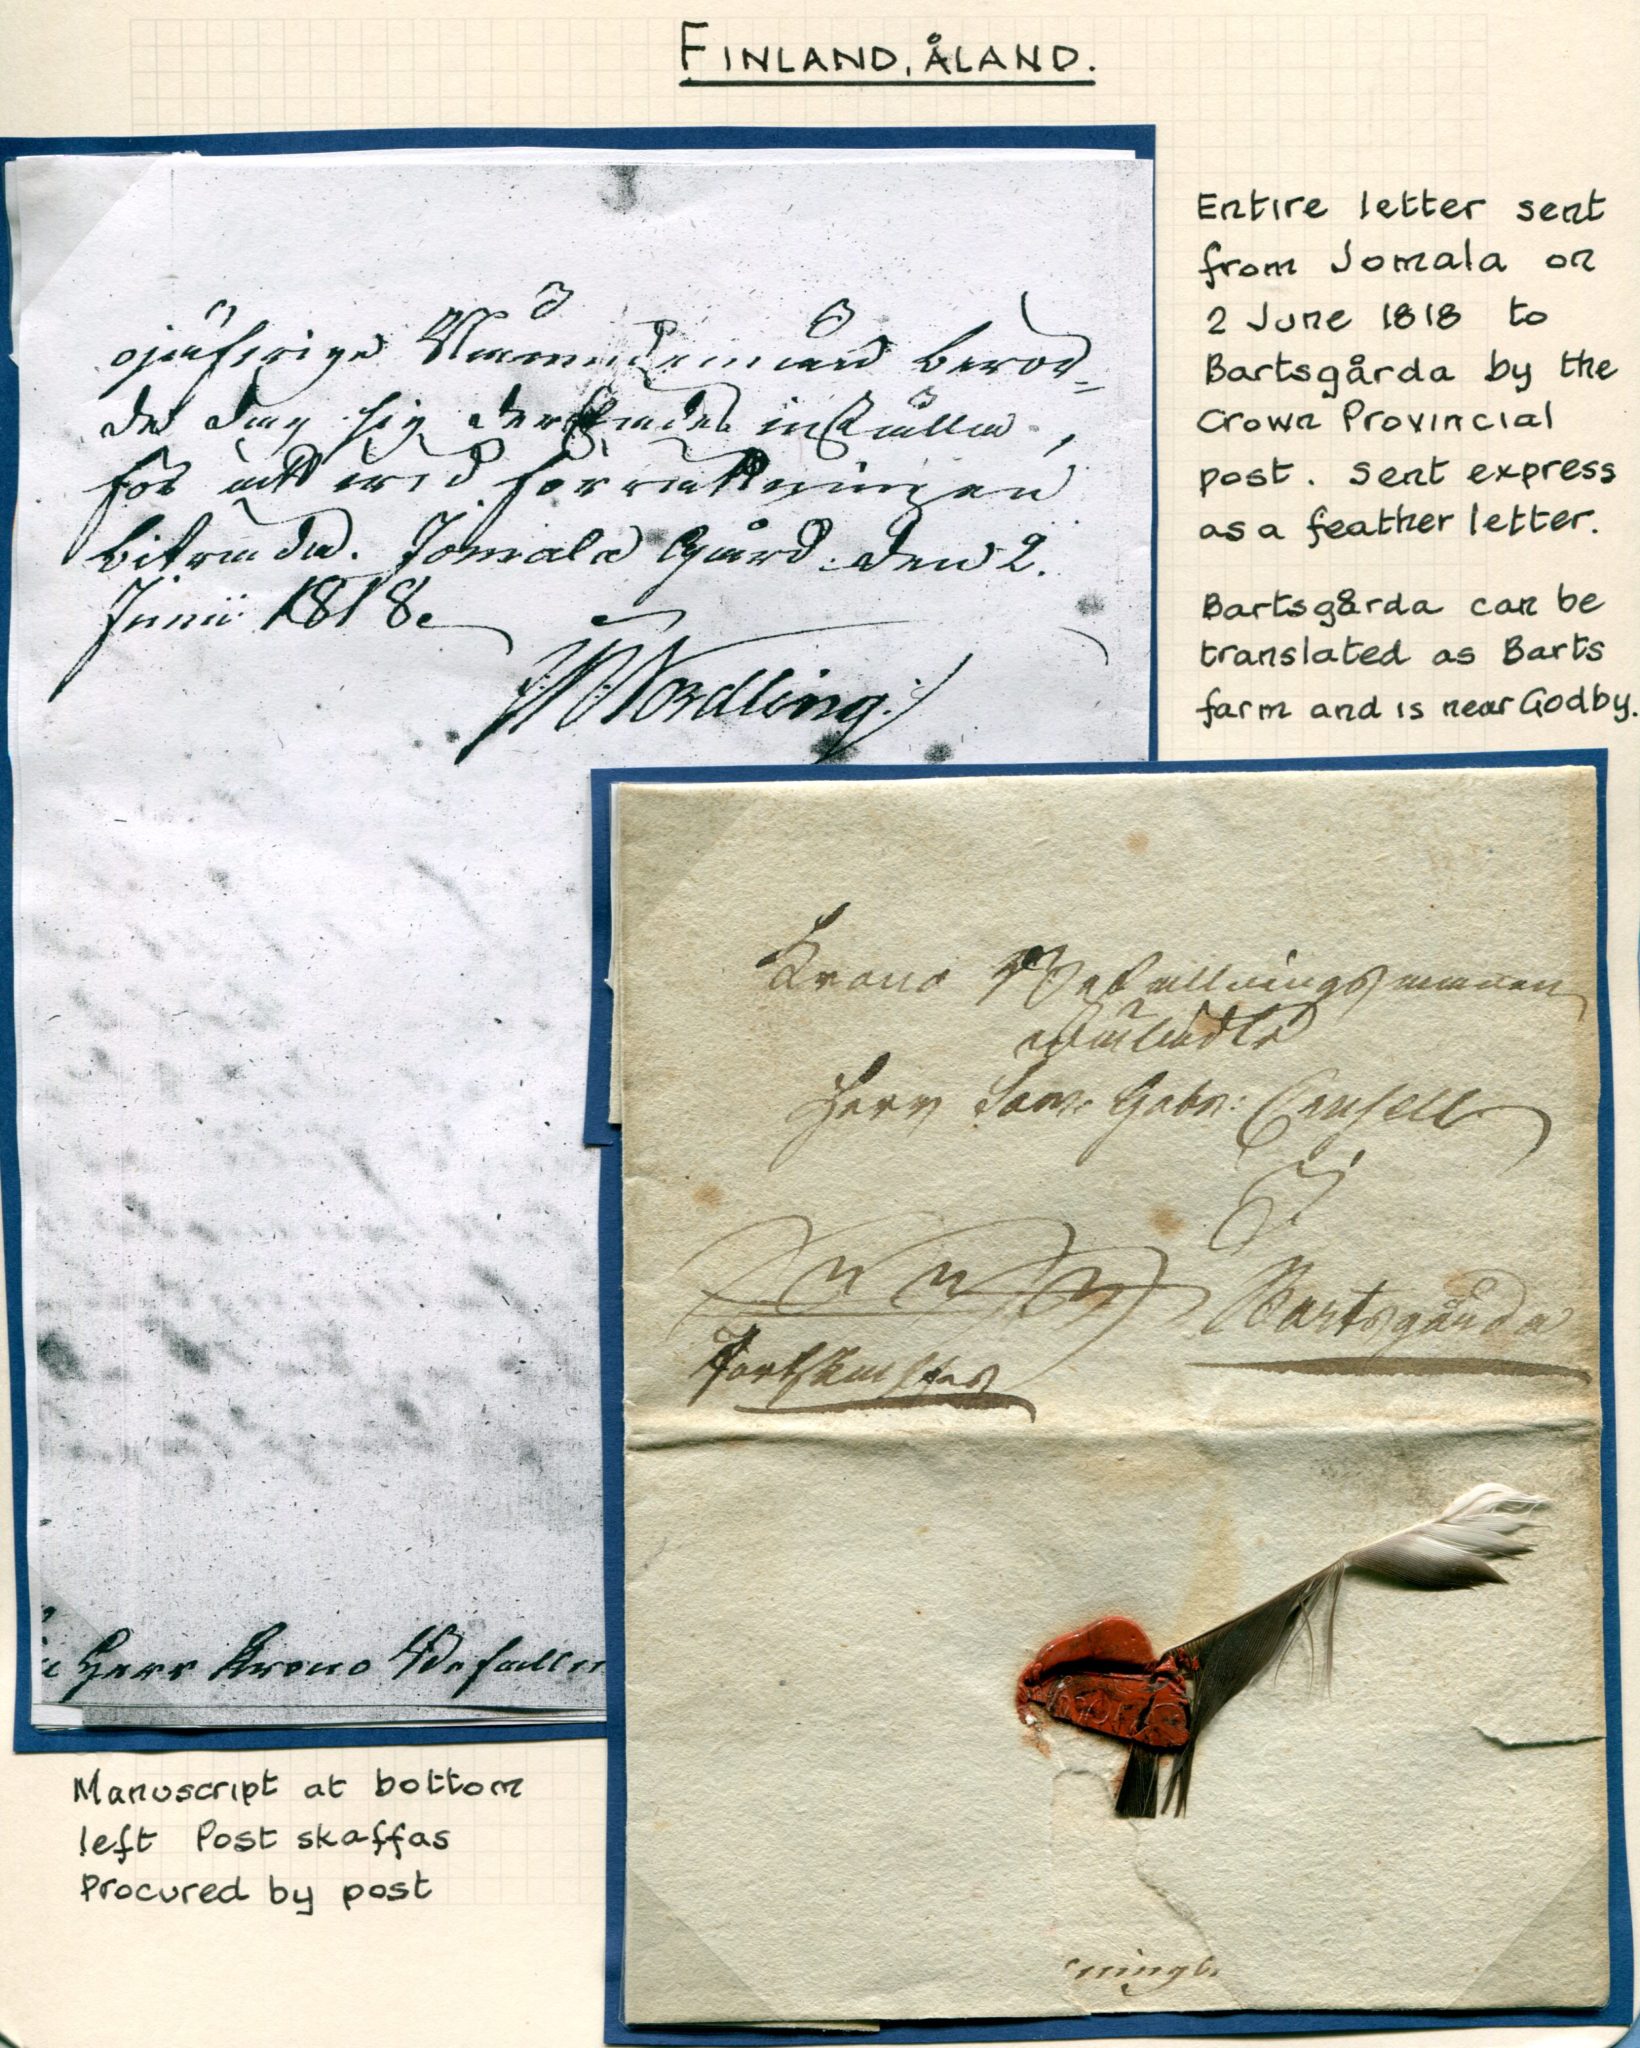 FINLAND, ÅLAND.
Entire letter sent
from Jomala on
2 June 1818 to
Bartsgårda by the
Crown Provincial
post. Sent express
as a feather letter.
Bartsgårda can be
translated as Barts
farm and is near Godby.
ojäfvige Nämndemän beror-
de dag sig derstädes inställa,
för att wid förrättningen
biträda. Jomala Gård den 2.
Junii 1818.
Nordling
Herr Krono Befalln
Krono Befallningsmannen
Wälädle
Herr Sam: Gabr:
I
Bartsgårda
Postskaffas
ningb
Manuscript at bottom
left Post skaffas
Procured by post